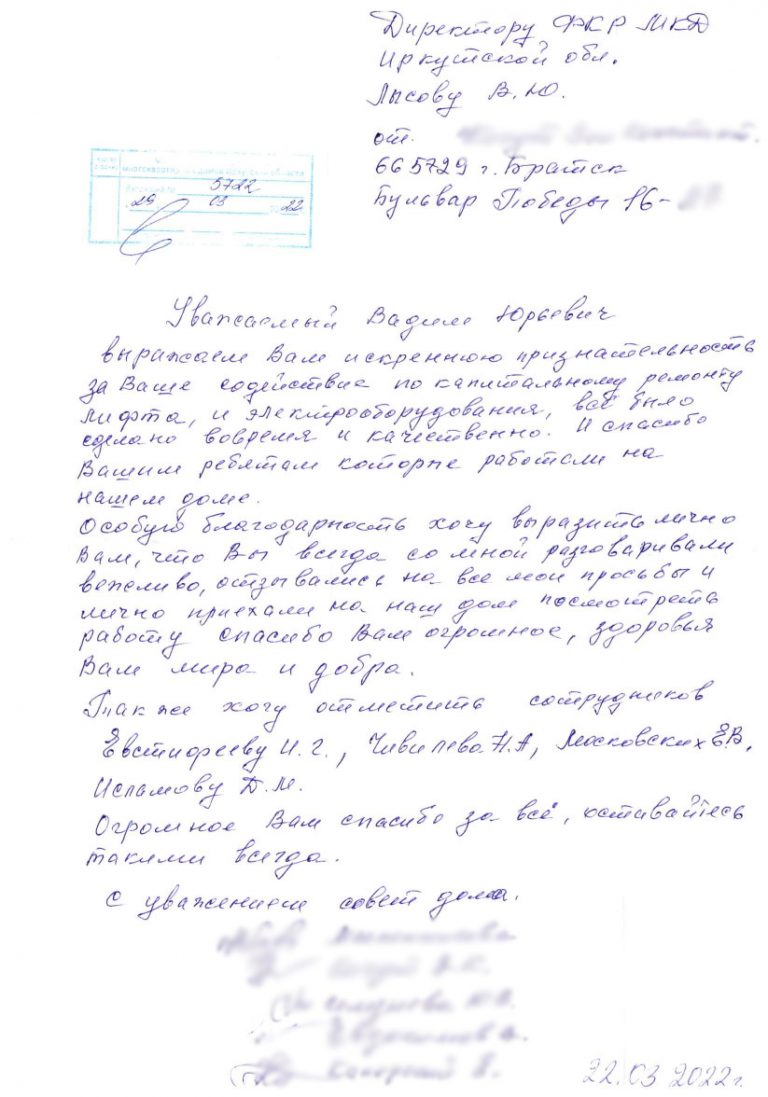 Директору ФКР МКД
Иркутской обл.
Лысову В.Ю.
от.
665729 г. Братск
Бульвар Победы 16-
многоквартирных
области
Входящий № 5722
29 03 2022
Уважаемый Вадим Юрьевич
выражаем Вам искреннюю признательность
за Ваше содействие по капитальному ремонту
лифта, и электрооборудования, всё было
сделано вовремя и качественно. И спасибо
Вашим ребятам которые работали на
нашем доме.
Особую благодарность хочу выразить лично
Вам, что Вы всегда со мной разговаривали
вежливо, отзывались на все мои просьбы и
лично приехали на наш дом посмотреть
работу спасибо Вам огромное, здоровья
Вам мира и добра.
Также хочу отметить сотрудников
Евстифееву И.Г., Чивилева Н.А, Московских Е.В,
Исламову Д.М.
Огромное Вам спасибо за всё, оставайтесь
такими всегда.
С уважением совет дома.
22.03 2022г.